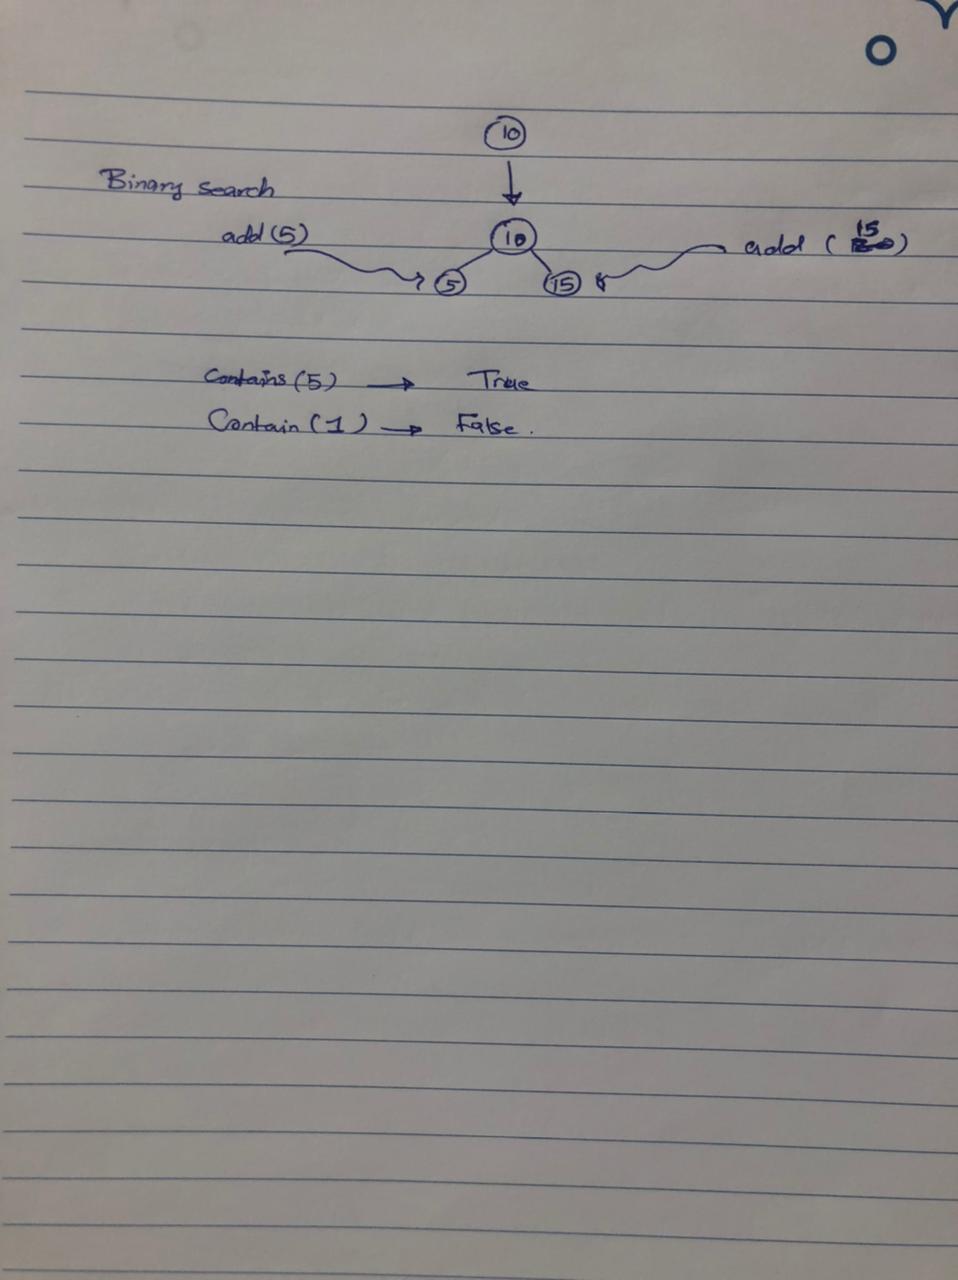 10
Binary search
10
add (5)
add (15)
5
15
Contains (5) → True
Contain (1) → False.